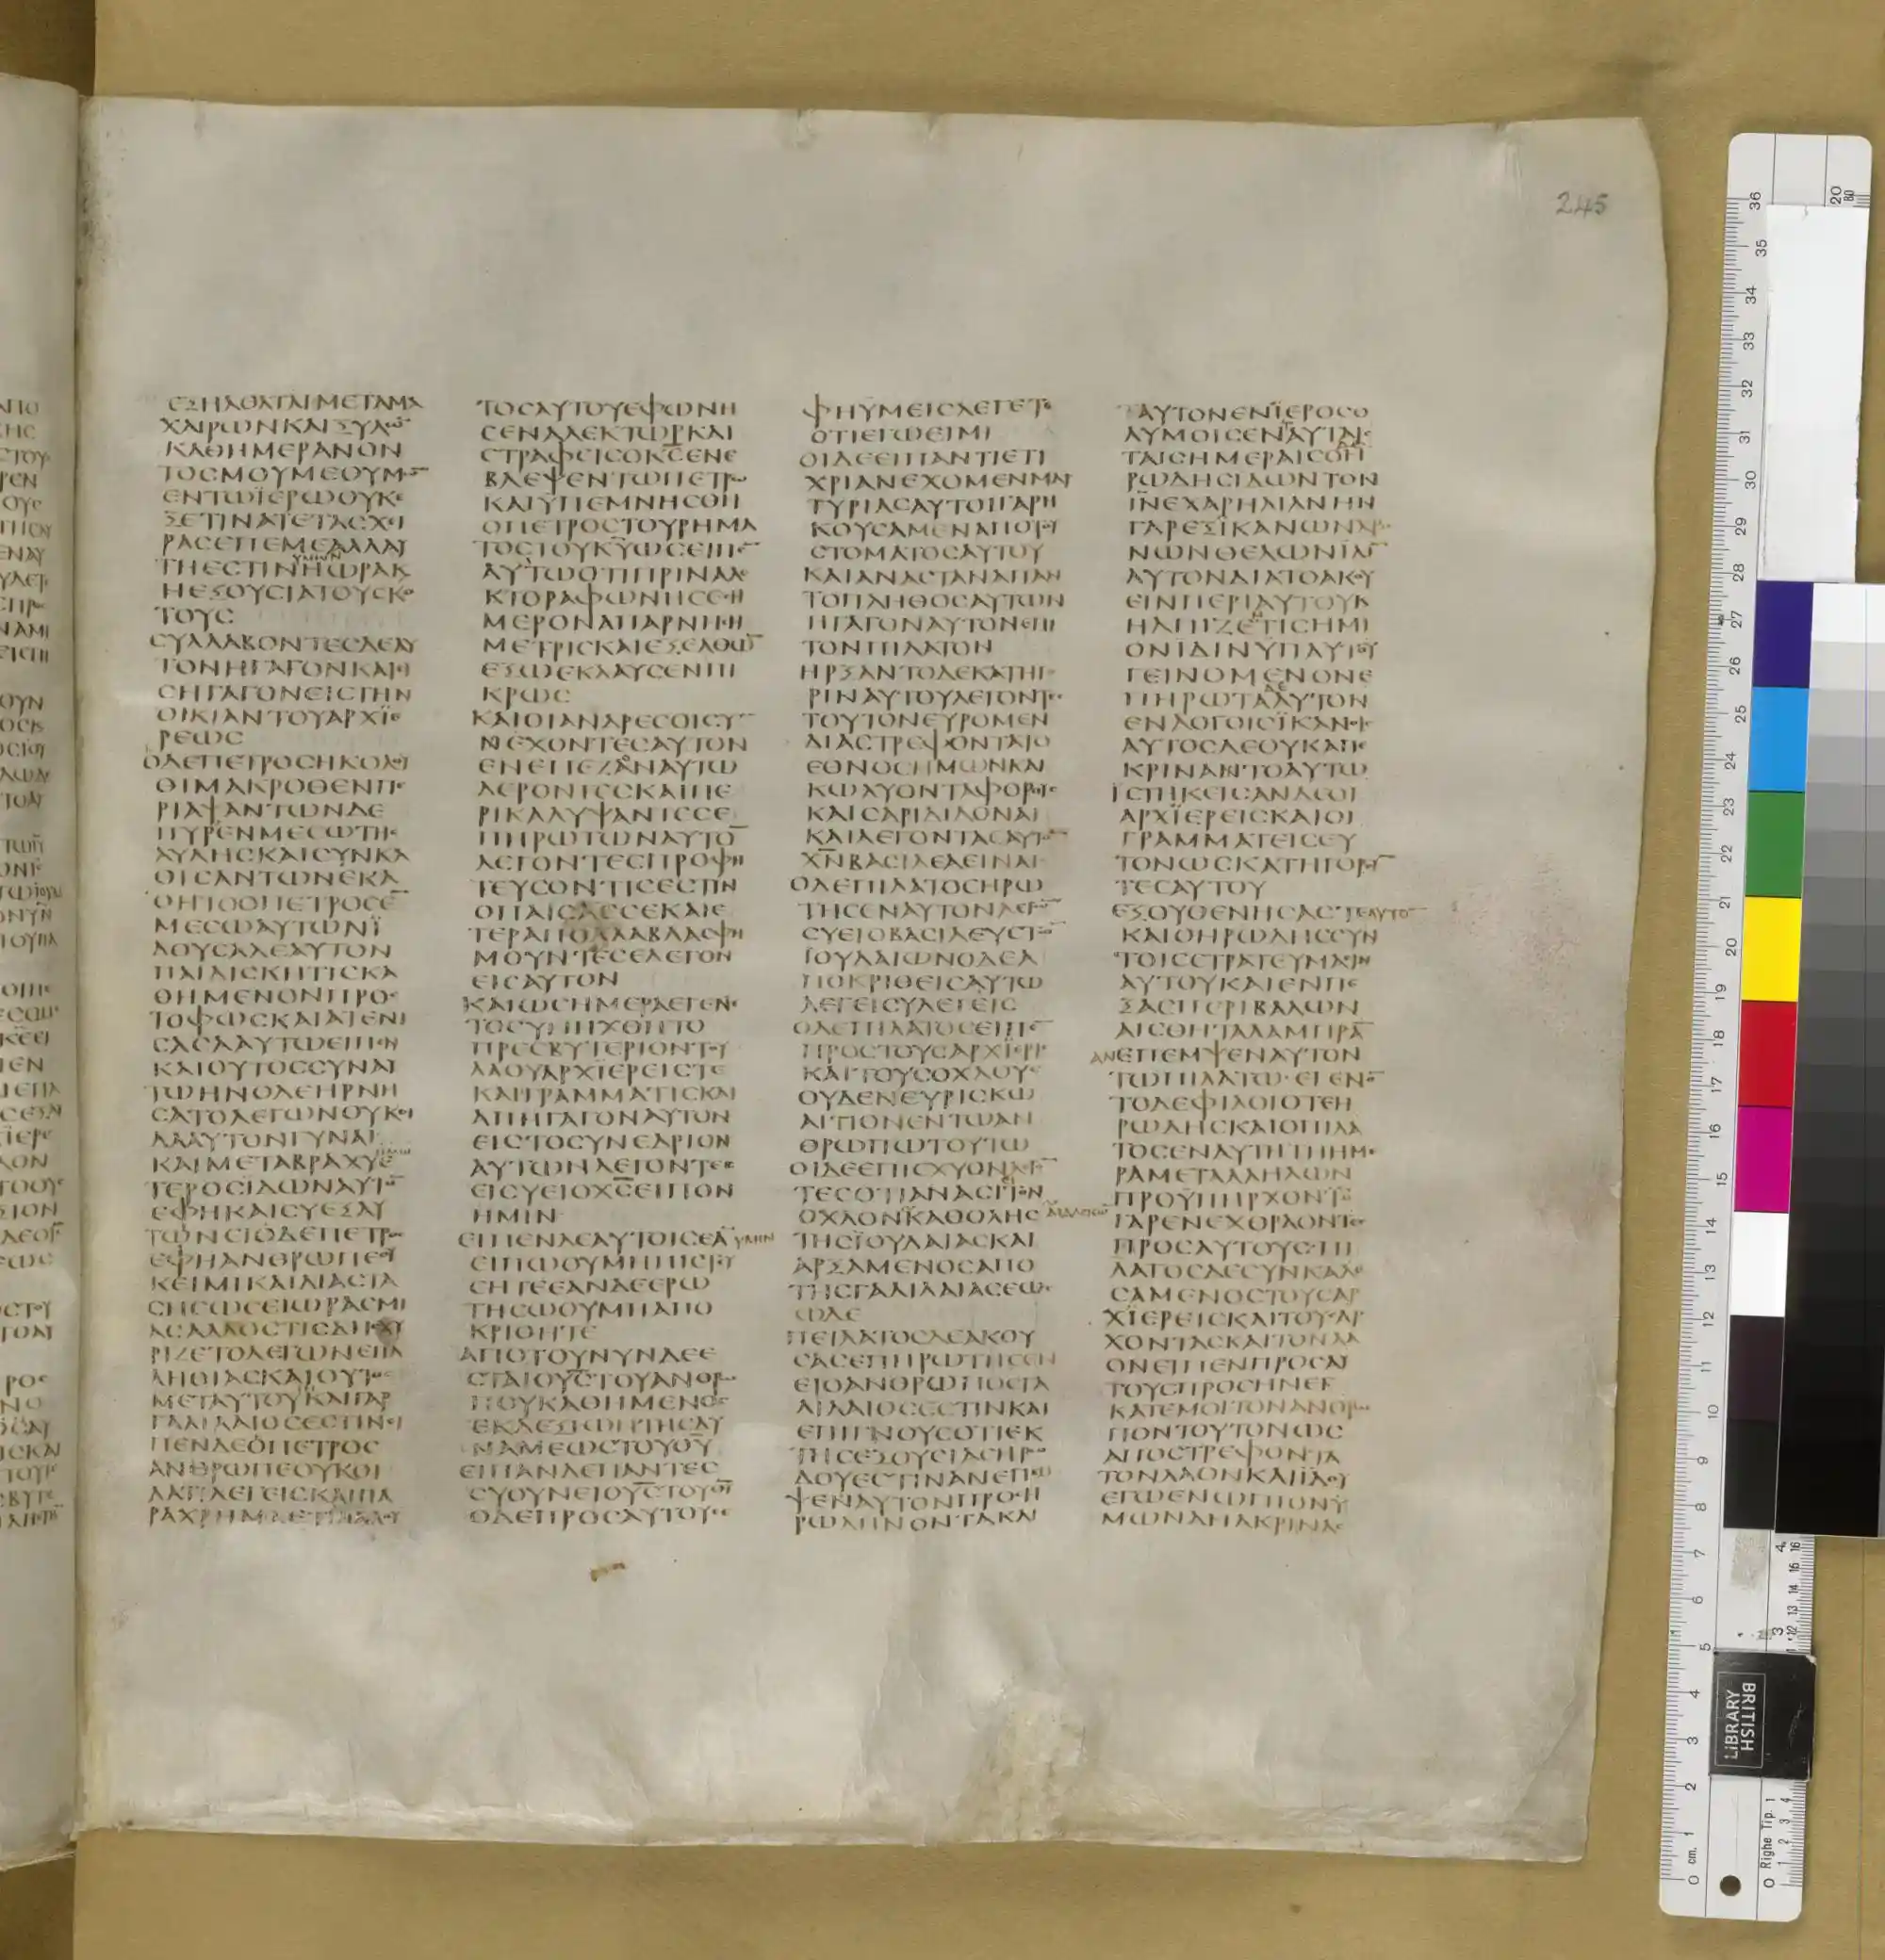 245
ΕΞΗΛΘΑΤΑΙΜΕΤΑΜΑ
ΧΑΙΡΩΝΚΑΙΞΥΛΩ̅
ΚΑΘΗΜΕΡΑΝΟΝ
ΤΟϹΜΟΥΜΕΘΥΜΩ̅
ΕΝΤΩΪΕΡΩΟΥΚΕ
ΞΕΤΙΝΑΤΕΤΑϹΧΙ
ΡΑϹΕΠΕΜΕΑΛΛΑΥ
ΤΗΕϹΤΙΝΥΜΩΝΗΩΡΑΚ
ΗΕΞΟΥϹΙΑΤΟΥϹΚΟ
ΤΟΥϹ
ϹΥΛΛΑΒΟΝΤΕϹΔΕΑΥ
ΤΟΝΗΓΑΓΟΝΚΑΙΙ
ϹΗΓΑΓΟΝΕΙϹΤΗΝ
ΟΙΚΙΑΝΤΟΥΑΡΧΪΕ
ΡΕΩϹ
ΟΔΕΠΕΤΡΟϹΗΚΟΛΟΥ
ΘΙΜΑΚΡΟΘΕΝΠΕ
ΡΙΑΨΑΝΤΩΝΔΕ
ΠΥΡΕΝΜΕϹΩΤΗϹ
ΑΥΛΗϹΚΑΙϹΥΝΚΑ
ΘΙϹΑΝΤΩΝΕΚΑ
ΘΗΤΟΟΠΕΤΡΟϹΕ̅
ΜΕϹΩΑΥΤΩΝΪ
ΔΟΥϹΑΔΕΑΥΤΟΝ
ΠΑΙΔΙϹΚΗΤΙϹΚΑ
ΘΗΜΕΝΟΝΠΡΟϹ
ΤΟΦΩϹΚΑΙΑΤΕΝΙ
ϹΑϹΑΑΥΤΩΕΙΠΕΝ
ΚΑΙΟΥΤΟϹϹΥΝΑΥ
ΤΩΗΝΟΔΕΗΡΝΗ
ϹΑΤΟΛΕΓΩΝΟΥΚΟΙ
ΔΑΑΥΤΟΝΓΥΝΑΙ
ΚΑΙΜΕΤΑΒΡΑΧΥΕ
ΤΕΡΟϹΙΔΩΝΑΥΤΟ̅
ΕΦΗΚΑΙϹΥΕΞΑΥ
ΤΩΝϹΙΟΔΕΠΕΤΡΟϹ
ΕΦΗΑΝΘΡΩΠΕΟΥ
ΚΕΙΜΙΚΑΙΔΙΑϹΤΑ
ϹΗϹΩϹΕΙΩΡΑϹΜΙ
ΑϹΑΛΛΟϹΤΙϹΔΙΪϹΧΥ
ΡΙΖΕΤΟΛΕΓΩΝΕΠΑ
ΛΗΘΙΑϹΚΑΙΟΥΤΟϹ
ΜΕΤΑΥΤΟΥΚΑΙΓΑΡ
ΓΑΛΙΛΑΙΟϹΕϹΤΙΝΕΙ
ΠΕΝΔΕΟΠΕΤΡΟϹ
ΑΝΘΡΩΠΕΟΥΚΟΙ
ΔΑΤΙΛΕΓΕΙϹΚΑΙΠΑ
ΡΑΧΡΗΜΑΕΤΙΛΑΛΟΥ
ΤΟϹΑΥΤΟΥΕΦΩΝΗ
ϹΕΝΑΛΕΚΤΩΡΚΑΙ
ϹΤΡΑΦΕΙϹΟΚ̅Ϲ̅ΕΝΕ
ΒΛΕΨΕΝΤΩΠΕΤΡΩ
ΚΑΙΫΠΕΜΝΗϹΘΗ
ΟΠΕΤΡΟϹΤΟΥΡΗΜΑ
ΤΟϹΤΟΥΚ̅Υ̅ΩϹΕΙΠΕ̅
ΑΥΤΩΟΤΙΠΡΙΝΑΛΕ
ΚΤΟΡΑΦΩΝΗϹΕϹΗ
ΜΕΡΟΝΑΠΑΡΝΗϹΗ
ΜΕΤΡΙϹΚΑΙΕΞΕΛΘΩ̅
ΕΞΩΕΚΛΑΥϹΕΝΠΙ
ΚΡΩϹ
ΚΑΙΟΙΑΝΔΡΕϹΟΙϹΥ
ΝΕΧΟΝΤΕϹΑΥΤΟΝ
ΕΝΕΠΕΖΑΝΑΥΤΩ
ΔΕΡΟΝΤΕϹΚΑΙΠΕ
ΡΙΚΑΛΥΨΑΝΤΕϹΕ
ΠΗΡΩΤΩΝΑΥΤΟ̅
ΛΕΓΟΝΤΕϹΠΡΟΦΗ
ΤΕΥϹΟΝΤΙϹΕϹΤΙΝ
ΟΠΑΙϹΑϹϹΕΚΑΙΕ
ΤΕΡΑΠΟΛΛΑΒΛΑϹΦΗ
ΜΟΥΝΤΕϹΕΛΕΓΟΝ
ΕΙϹΑΥΤΟΝ
ΚΑΙΩϹΗΜΕΡΑΕΓΕΝΕ
ΤΟϹΥΝΗΧΘΗΤΟ
ΠΡΕϹΒΥΤΕΡΙΟΝΤΟΥ
ΛΑΟΥΑΡΧΪΕΡΕΙϹΤΕ
ΚΑΙΓΡΑΜΜΑΤΙϹΚΑΙ
ΑΠΗΓΑΓΟΝΑΥΤΟΝ
ΕΙϹΤΟϹΥΝΕΔΡΙΟΝ
ΑΥΤΩΝΛΕΓΟΝΤΕϹ
ΕΙϹΥΕΙΟΧ̅Ϲ̅ΕΙΠΟΝ
ΗΜΙΝ
ΕΙΠΕΝΔΕΑΥΤΟΙϹΕΑ̅ΥΜΙΝ
ΕΙΠΩΟΥΜΗΠΙϹΤΕΥ
ϹΗΤΕΕΑΝΔΕΕΡΩ
ΤΗϹΩΟΥΜΗΑΠΟ
ΚΡΙΘΗΤΕ
ΑΠΟΤΟΥΝΥΝΔΕΕ
ϹΤΑΙΟΥ̅Ϲ̅ΤΟΥΑΝΘΡΩ
ΠΟΥΚΑΘΗΜΕΝΟϹ
ΕΚΔΕΞΙΩΝΤΗϹΔΥ
ΝΑΜΕΩϹΤΟΥΘ̅Υ̅
ΕΙΠΑΝΔΕΠΑΝΤΕϹ
ϹΥΟΥΝΕΙΟΥ̅Ϲ̅ΤΟΥΘ̅Υ̅
ΟΔΕΠΡΟϹΑΥΤΟΥϹΕ
ΦΗΫΜΕΙϹΛΕΓΕΤΕ
ΟΤΙΕΓΩΕΙΜΙ
ΟΙΔΕΕΙΠΑΝΤΙΕΤΙ
ΧΡΙΑΝΕΧΟΜΕΝΜΑΡ
ΤΥΡΙΑϹΑΥΤΟΙΓΑΡΗ
ΚΟΥϹΑΜΕΝΑΠΟΤΟΥ
ϹΤΟΜΑΤΟϹΑΥΤΟΥ
ΚΑΙΑΝΑϹΤΑΝΑΠΑΝ
ΤΟΠΛΗΘΟϹΑΥΤΩΝ
ΗΓΑΓΟΝΑΥΤΟΝΕΠΙ
ΤΟΝΠΙΛΑΤΟΝ
ΗΡΞΑΝΤΟΔΕΚΑΤΗΓΟ
ΡΙΝΑΥΤΟΥΛΕΓΟΝΤΕϹ
ΤΟΥΤΟΝΕΥΡΟΜΕΝ
ΔΙΑϹΤΡΕΦΟΝΤΑΤΟ
ΕΘΝΟϹΗΜΩΝΚΑΙ
ΚΩΛΥΟΝΤΑΦΟΡΟΥϹ
ΚΑΙϹΑΡΙΔΙΔΟΝΑΙ
ΚΑΙΛΕΓΟΝΤΑΕΑΥΤΟ̅
Χ̅Ν̅ΒΑϹΙΛΕΑΕΙΝΑΙ
ΟΔΕΠΙΛΑΤΟϹΗΡΩ
ΤΗϹΕΝΑΥΤΟΝΛΕΓΩ̅
ϹΥΕΙΟΒΑϹΙΛΕΥϹΤΩ̅
ΙΟΥΔΑΙΩΝΟΔΕΑ
ΠΟΚΡΙΘΕΙϹΑΥΤΩ
ΛΕΓΕΙϹΥΛΕΓΕΙϹ
ΟΔΕΠΙΛΑΤΟϹΕΙΠΕ̅
ΠΡΟϹΤΟΥϹΑΡΧΪΕΡΕΙϹ
ΚΑΙΤΟΥϹΟΧΛΟΥϹ
ΟΥΔΕΝΕΥΡΙϹΚΩ
ΑΙΤΙΟΝΕΝΤΩΑΝ
ΘΡΩΠΩΤΟΥΤΩ
ΟΙΔΕΕΠΙϹΧΥΟΝΛΕΓΟ̅
ΤΕϹΟΤΙΑΝΑϹΙΕΙΤΟΝ
ΟΧΛΟΝΚΑΘΟΛΗϹ
ΤΗϹΪΟΥΔΑΙΑϹΚΑΙ
ΑΡΞΑΜΕΝΟϹΑΠΟ
ΤΗϹΓΑΛΙΛΑΙΑϹΕΩϹ
ΩΔΕ
ΠΕΙΛΑΤΟϹΔΕΑΚΟΥ
ϹΑϹΕΠΗΡΩΤΗϹΕΝ
ΕΙΟΑΝΘΡΩΠΟϹΓΑ
ΛΙΛΑΙΟϹΕϹΤΙΝΚΑΙ
ΕΠΙΓΝΟΥϹΟΤΙΕΚ
ΤΗϹΕΞΟΥϹΙΑϹΗΡΩ
ΔΟΥΕϹΤΙΝΑΝΕΠΕΜ
ΨΕΝΑΥΤΟΝΠΡΟϹΗ
ΡΩΔΗΝΟΝΤΑΚΑΙ
ΑΥΤΟΝΕΝΪΕΡΟϹΟ
ΛΥΜΟΙϹΕΝΑΥΤΑΙϹ
ΤΑΙϹΗΜΕΡΑΙϹΟΗ
ΡΩΔΗϹΙΔΩΝΤΟΝ
Ι̅Ν̅ΕΧΑΡΗΛΙΑΝΗΝ
ΓΑΡΕΞΙΚΑΝΩΝΧΡΟ
ΝΩΝΘΕΛΩΝΪΔΕΙ̅
ΑΥΤΟΝΔΙΑΤΟΑΚΟΥ
ΕΙΝΠΕΡΙΑΥΤΟΥΚ
ΗΛΠΙΖΕΤΙϹΗΜΙ
ΟΝΙΔΙΝΥΠΑΥΤΟΥ
ΓΕΙΝΟΜΕΝΟΝΕ
ΠΗΡΩΤΑΔΕΑΥΤΟΝ
ΕΝΛΟΓΟΙϹΪΚΑΝΟΙϹ
ΑΥΤΟϹΔΕΟΥΚΑΠΕ
ΚΡΙΝΑΝΤΟΑΥΤΩ
ΪϹΤΗΚΕΙϹΑΝΔΕΟΙ
ΑΡΧΪΕΡΕΙϹΚΑΙΟΙ
ΓΡΑΜΜΑΤΕΙϹΕΥ
ΤΟΝΩϹΚΑΤΗΓΟΡΟΥ̅
ΤΕϹΑΥΤΟΥ
ΕΞΟΥΘΕΝΗϹΑϹΔΕΑΥΤΟ̅
ΚΑΙΟΗΡΩΔΗϹϹΥΝ
ΤΟΙϹϹΤΡΑΤΕΥΜΑϹΙΝ
ΑΥΤΟΥΚΑΙΕΝΠΕ
ΞΑϹΠΕΡΙΒΑΛΩΝ
ΑΙϹΘΗΤΑΛΑΜΠΡΑ̅
ΑΝΕΠΕΜΨΕΝΑΥΤΟΝ
ΤΩΠΙΛΑΤΩΕΓΕΝΟ̅
ΤΟΔΕΦΙΛΟΙΟΤΕΗ
ΡΩΔΗϹΚΑΙΟΠΙΛΑ
ΤΟϹΕΝΑΥΤΗΤΗΗΜΕ
ΡΑΜΕΤΑΛΛΗΛΩΝ
ΠΡΟΫΠΗΡΧΟΝΤΟ
ΓΑΡΕΝΕΧΘΡΑΟΝΤΕϹ
ΠΡΟϹΑΥΤΟΥϹΠΙ
ΛΑΤΟϹΔΕϹΥΝΚΑΛΕ
ϹΑΜΕΝΟϹΤΟΥϹΑΡ
ΧΪΕΡΕΙϹΚΑΙΤΟΥϹΑΡ
ΧΟΝΤΑϹΚΑΙΤΟΝΛΑ
ΟΝΕΙΠΕΝΠΡΟϹΑΥ
ΤΟΥϹΠΡΟϹΗΝΕΓ
ΚΑΤΕΜΟΙΤΟΝΑΝΘΡΩ
ΠΟΝΤΟΥΤΟΝΩϹ
ΑΠΟϹΤΡΕΦΟΝΤΑ
ΤΟΝΛΑΟΝΚΑΙΪΔΟΥ
ΕΓΩΕΝΩΠΙΟΝΫ
ΜΩΝΑΝΑΚΡΙΝΑϹ
BRITISH
LIBRARY